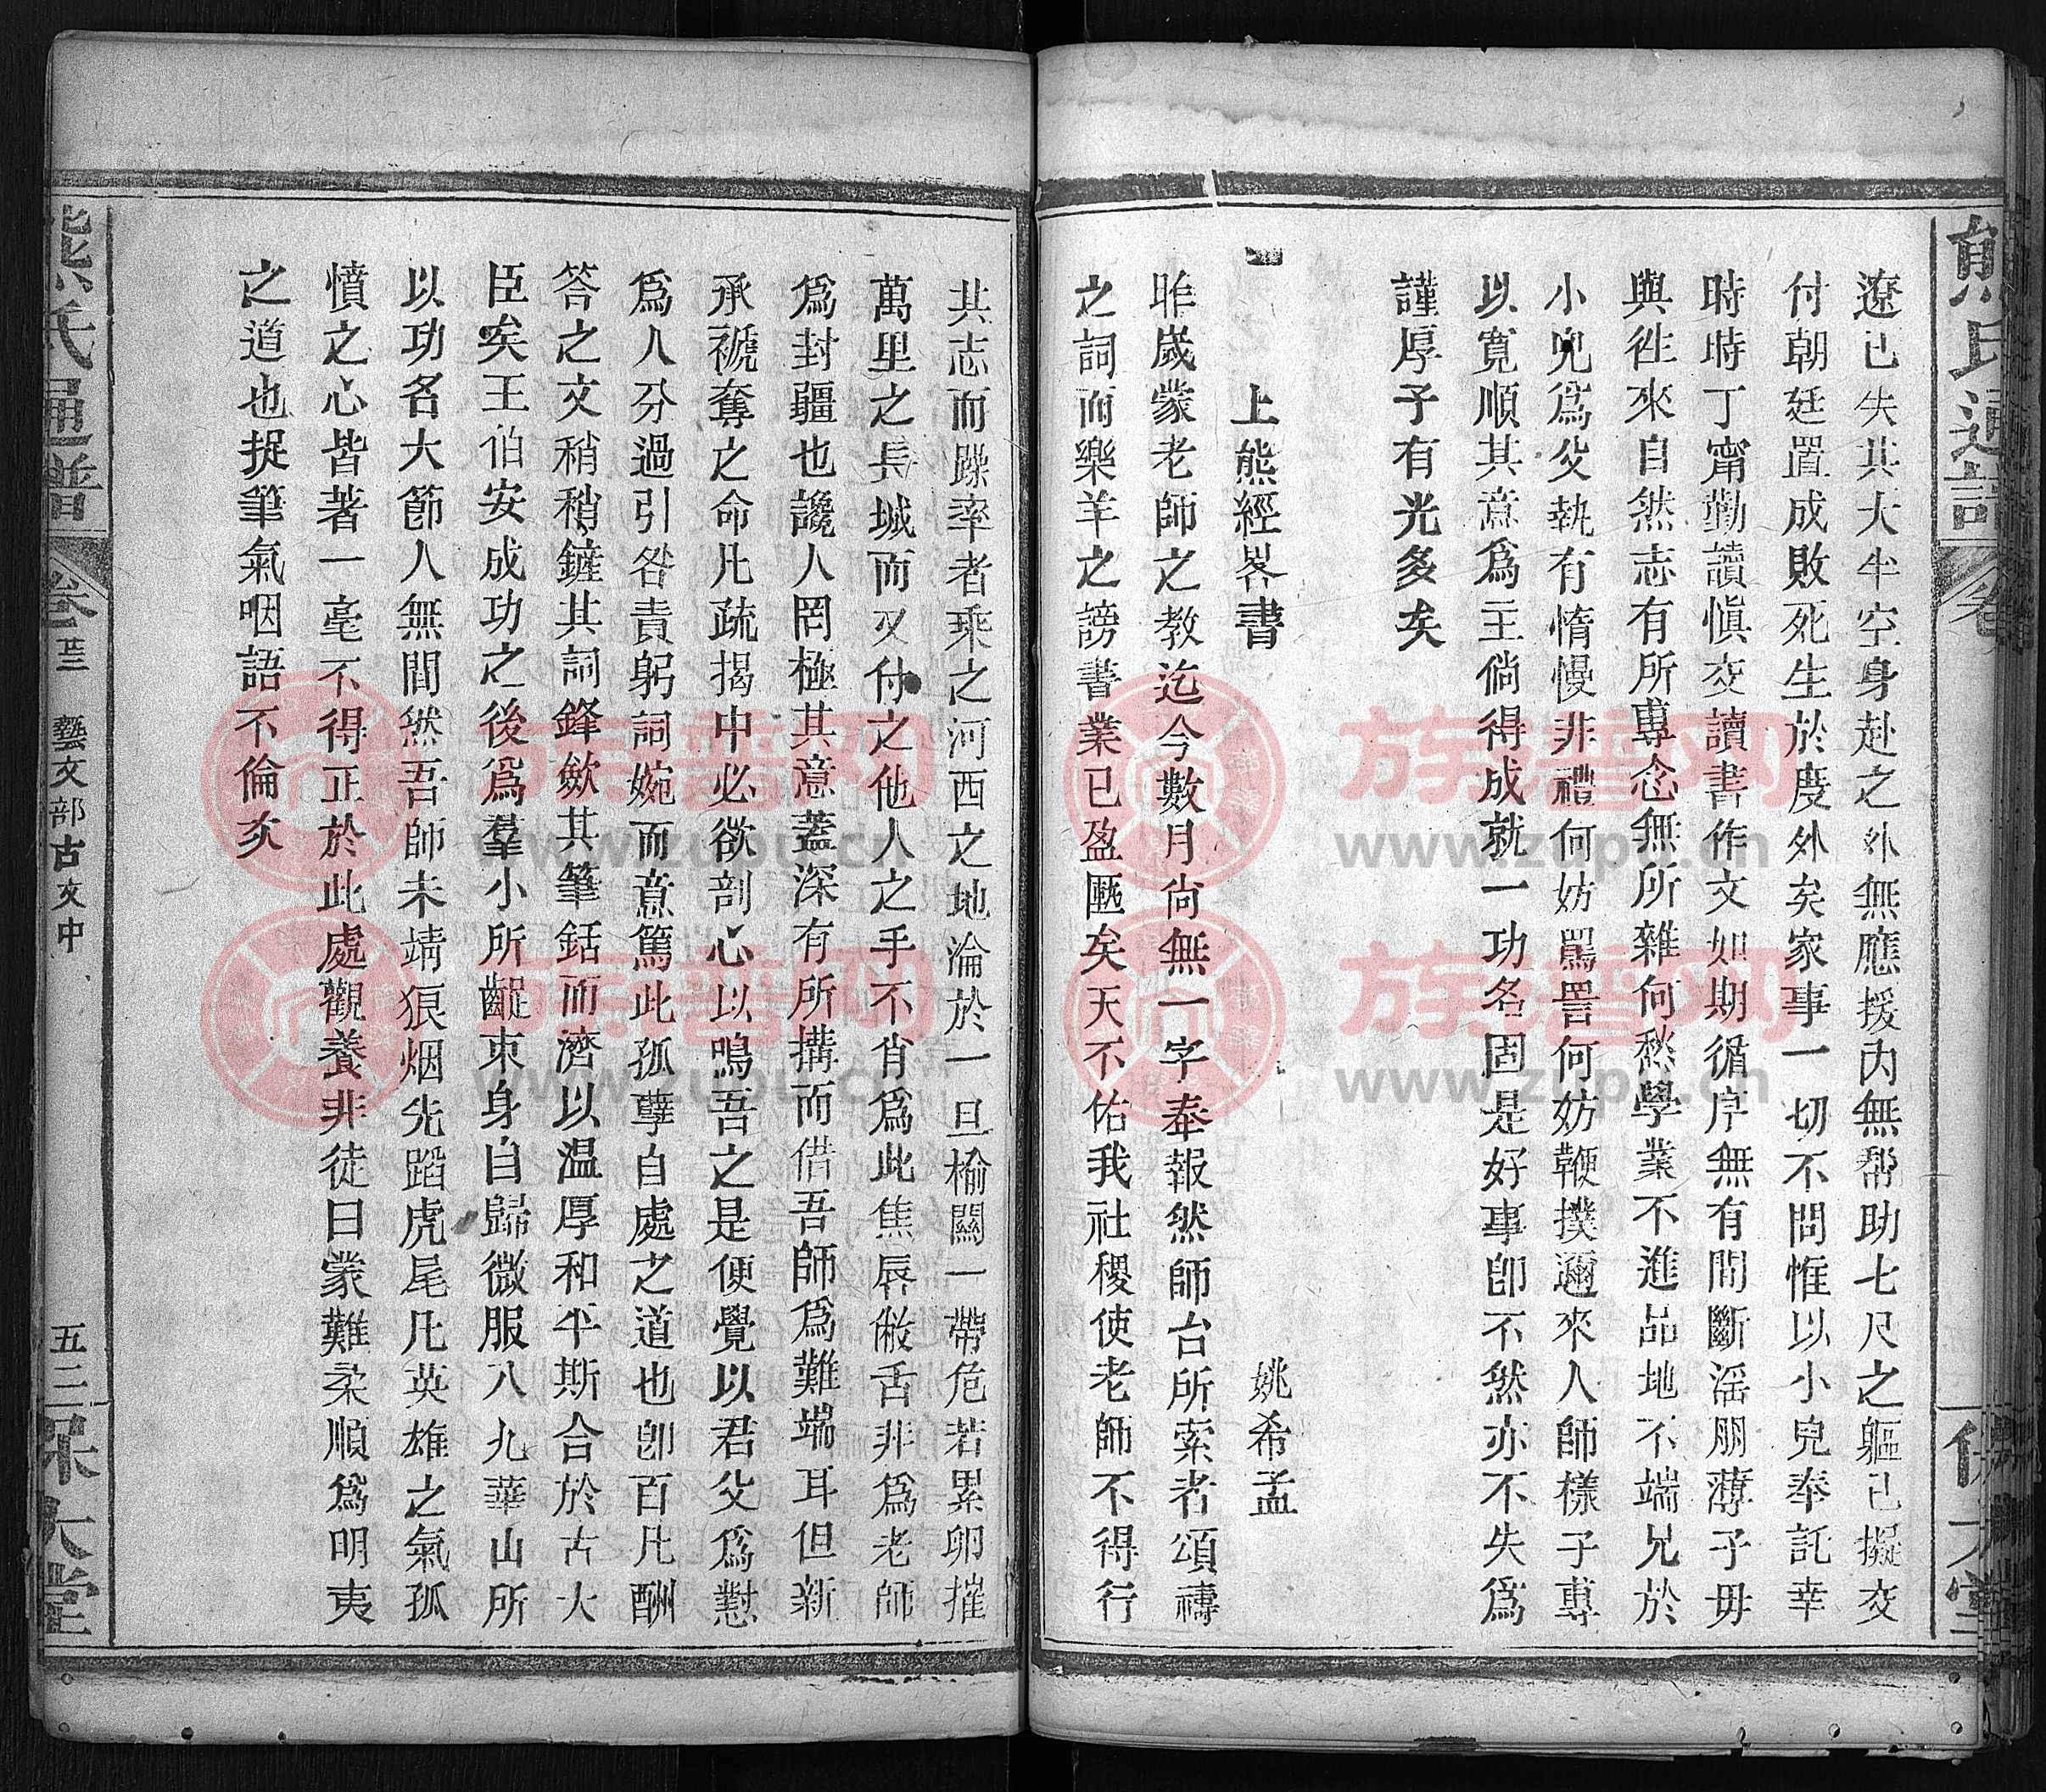 遼已失其大半空身赴之外無應援內無幫助七尺之軀已擬交
付朝廷置成敗死生於度外矣家事一切不問惟以小兒奉託幸
時時丁甯勤讀愼交讀書作文如期循序無有間斷滛朋薄子毋
與徃來自然志有所專念無所雜何愁學業不進品地不端兄於
小兒爲父執有惰慢非禮何妨罵詈何妨鞭撲邇來人師樣子專
以寬順其意爲主倘得成就一功名固是好事卽不然亦不失爲
謹厚子有光多矣
上熊經畧書 姚希孟
昨歲蒙老師之教迄今數月尙無一字奉報然師台所索者頌禱
之詞而樂羊之謗書業已盈匭矣天不佑我社稷使老師不得行
其志而躁率者乘之河西之地淪於一旦榆關一帶危若累卵摧
萬里之長城而又付之他人之手不肖爲此焦唇敝舌非爲老師
爲封疆也讒人罔極其意蓋深有所搆而借吾師爲難端耳但新
承褫奪之命凡疏揭中必欲剖心以鳴吾之是便覺以君父爲懟
爲人分過引咎責躬詞婉而意篤此孤孽自處之道也卽百凡酬
答之文稍稍鏟其詞鋒歛其筆銛而濟以温厚和平斯合於古大
臣矣王伯安成功之後爲羣小所齪束身自歸微服入九華山所
以功名大節人無間然吾師未靖狼烟先蹈虎尾凡英雄之氣孤
憤之心皆著一毫不得正於此處觀養非徒曰蒙難柔順爲明夷
之道也捉筆氣咽語不倫亥
熊氏通譜 卷 藝文部古文中 五三 保大堂